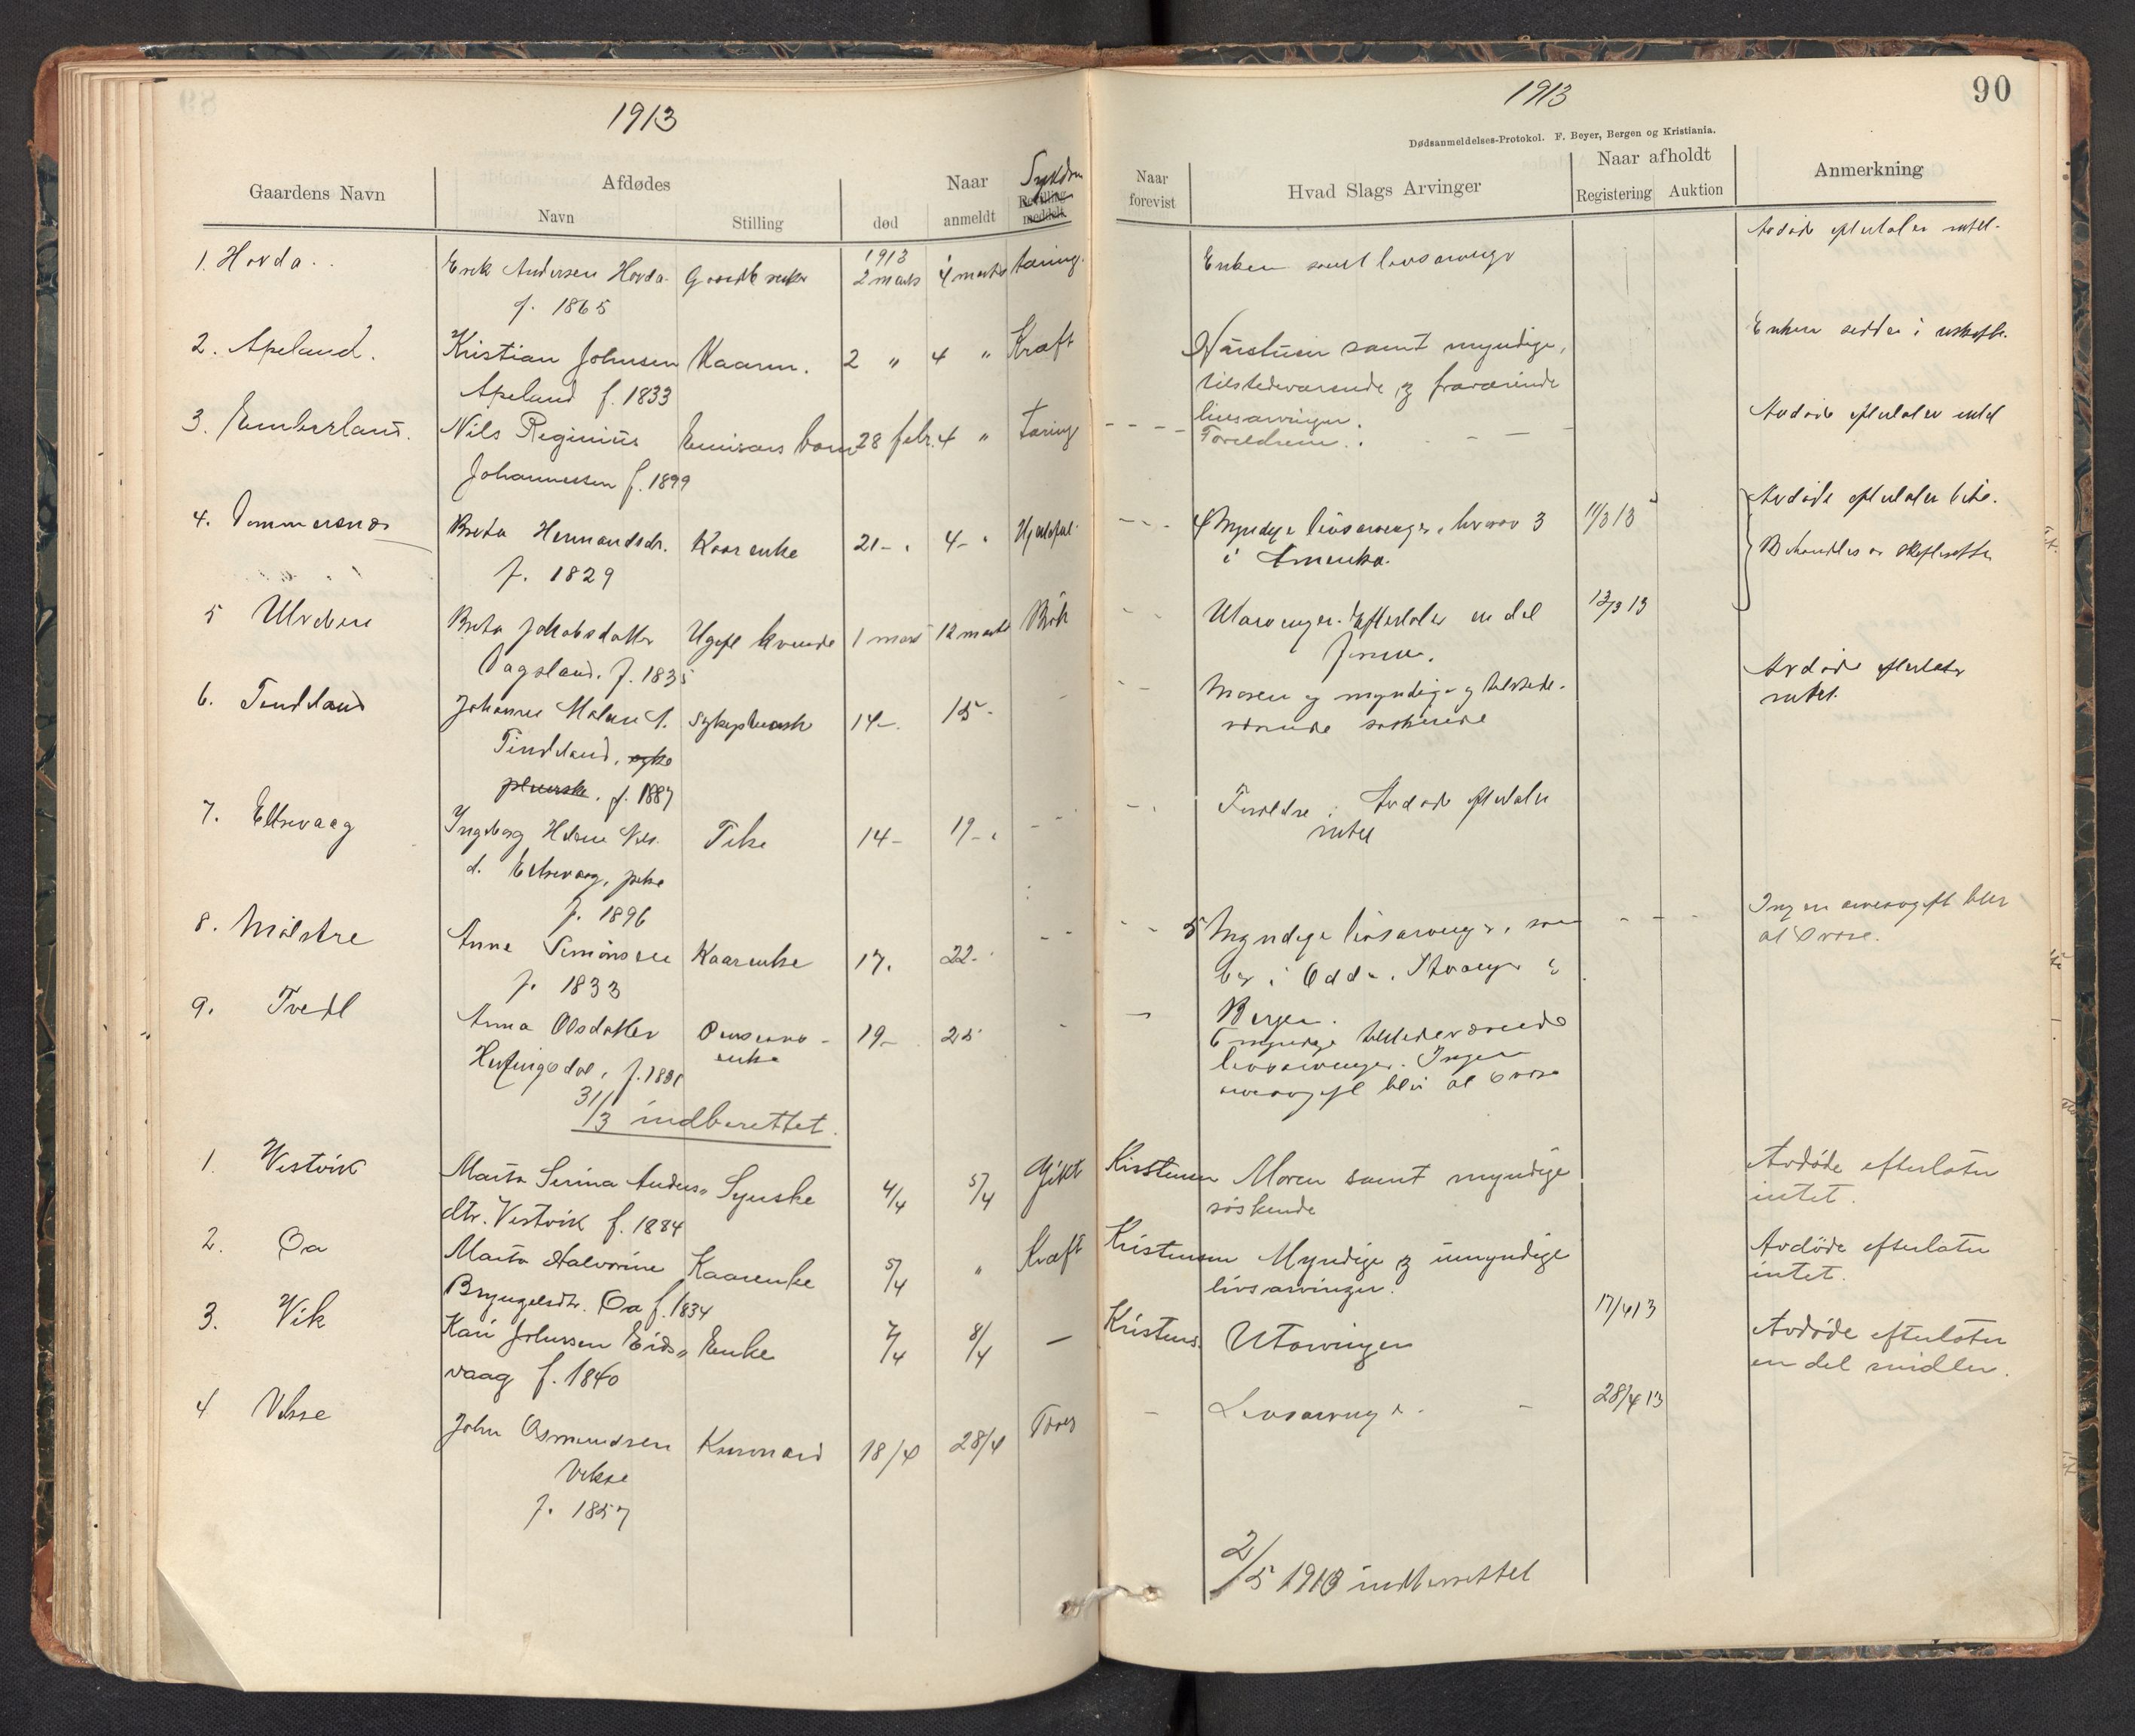 1913
Gaardens Navn
Afdødes
Navn
Stilling
Naar
død
anmeldt
Sykdom
Betaling
meddelt
1. Hovda
Erik Andersen Hovda
f. 1865
Gaardbruker
1913
2 marts
4 marts
tæring
2. Apeland.
Kristian Johnsen
Apeland f. 1833
Kaarm.
2 "
4 "
Kræft
3. Emberland.
Nils Reginius
Johannessen f. 1899
barn
28 febr.
4 "
Tæring
4. Dommersnes
Brita
f. 1829
Kaarenke
21-
4-
5 Ulveden
Brita Jakobsdatter
Dagsland. f. 1835
Ugift kvinde
1 mars
12 marts
6. Tindeland
Johanne Malene
Tindeland, syke
pleierske, f. 1887
Sykepleierske
14-
15-
7. Eltrevaag
Ingeborg Helene Nils
d. Eltrevaag, pike
f. 1896
Pike
14-
19-
8. Mølstre
Anna Simonsen
f. 1833
Kaarenke
17.
22.
9. Tvedt
Anna Olsdatter
Pensions-
enke
19-
25
31/3 indberettet.
1. Vestvik
Marta Serina Anders"
dtr. Vestvik f. 1884
Syerske
4/4
5/4
Gikt
2. Oa
Marta Halvorine
Bryngelsdtr. Oa f. 1834
Kaarenke
5/4
"
Kræft
3. Vik
Kari Johnsen Eids"
vaag f. 1840
Enke
7/4
8/4
—
4 Vikse
John Osmundsen
Vikse
f. 1857
Kaarmand
18/4
28/4
1913
90
Dødsanmeldelses-Protokol. F. Beyer, Bergen og Kristiania.
Naar
forevist
Hvad Slags Arvinger
Naar afholdt
Registering
Auktion
Anmerkning
Enken samt livsarvinger
Avdøde efterlater intet.
samt myndige,
tilstedeværende og fraværende
livsarvinger.
Enken sidder i uskifte.
Forældrene.
Avdøde efterlater intet
4 Myndige livsarvinger, hvorav 3
i Amerika.
11/3 13
Avdøde efterlater
Behandles av skifteretten
Utarvinger. Efterlater en del
12/3 13
Moren og myndige og tilstede-
værende søskende
Avdøde efterlater
intet.
Forældre. Avdøde efterlater
intet
5 Myndige livsarvinger, som
bor i Odda, Stavanger &
Bergen.
Ingen arveavgift blir
at svare.
6 myndige tilstedeværende
livsarvinger. Ingen
arveavgift blir at svare
Kristensen
Moren samt myndige
søskende
Avdøde efterlater
intet.
Kristensen
Myndige og umyndige
livsarvinger.
Avdøde efterlater
intet.
Kristens.
Utarvinger
17/4 13
Avdøde efterlater
en del midler.
Livsarvinger
28/4 13
2/5 1913 indberettet